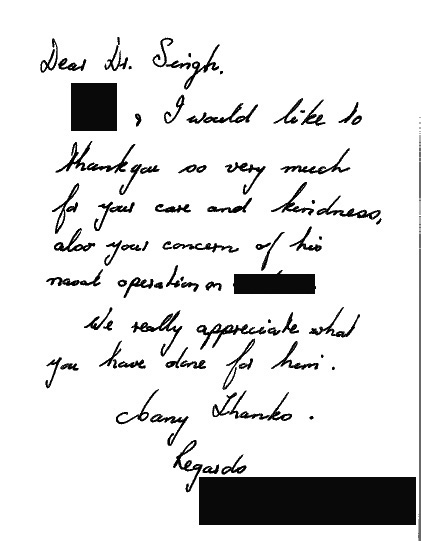 Dear Dr. Singh.
, I would like to
thankyou so very much
for your care and kindness,
also your concern of his
nasal operation on
We really appreciate what
you have done for him.
Many Thanks.
Regards